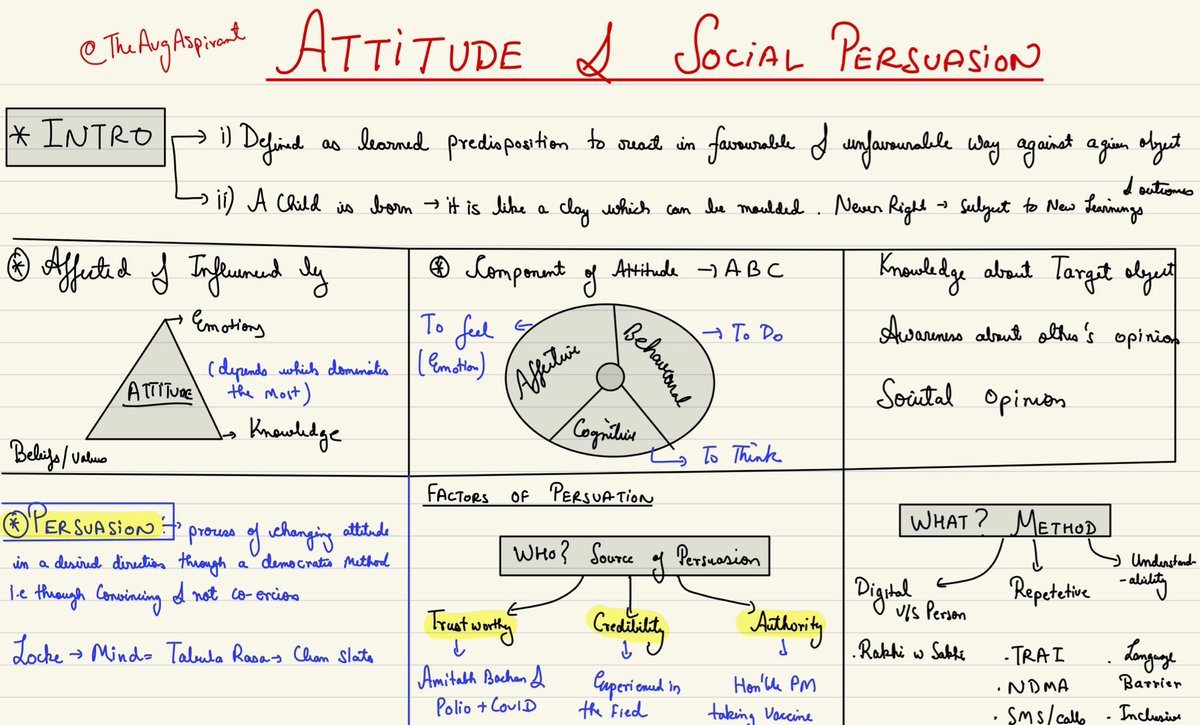 @TheAvgAspirant
ATTITUDE & SOCIAL PERSUASION
* INTRO
i) Defined as learned predisposition to react in favourable & unfavourable way against a given object
ii) A Child is born → it is like a clay which can be moulded. Never Right → Subject to New Learnings & outcomes
* Affected & Influenced by
Emotions
(depends which dominates
the most)
ATTITUDE
Knowledge
Beliefs/Values
* Component of Attitude → A B C
To feel
(Emotion)
Affective
Behavioural
To Do
Cognitive
To Think
Knowledge about Target object
Awareness about other's opinion
Societal Opinion
* PERSUASION :→ process of changing attitude
in a desired direction through a democratic method
i.e through Convincing & not co-ercion
Locke → Mind = Tabula Rasa → Clean Slate
FACTORS OF PERSUATION
WHO? Source of Persuasion
Trustworthy
Amitabh Bachan &
Polio + COVID
Credibility
Experienced in
the Fied
Authority
Hon'ble PM
taking Vaccine
WHAT? METHOD
Digital
V/S Person
. Rakhi w Sakhi
Repetetive
. TRAI
. NDMA
. SMS/calls
Understand
-ability
. Language
Barrier
. Inclusive